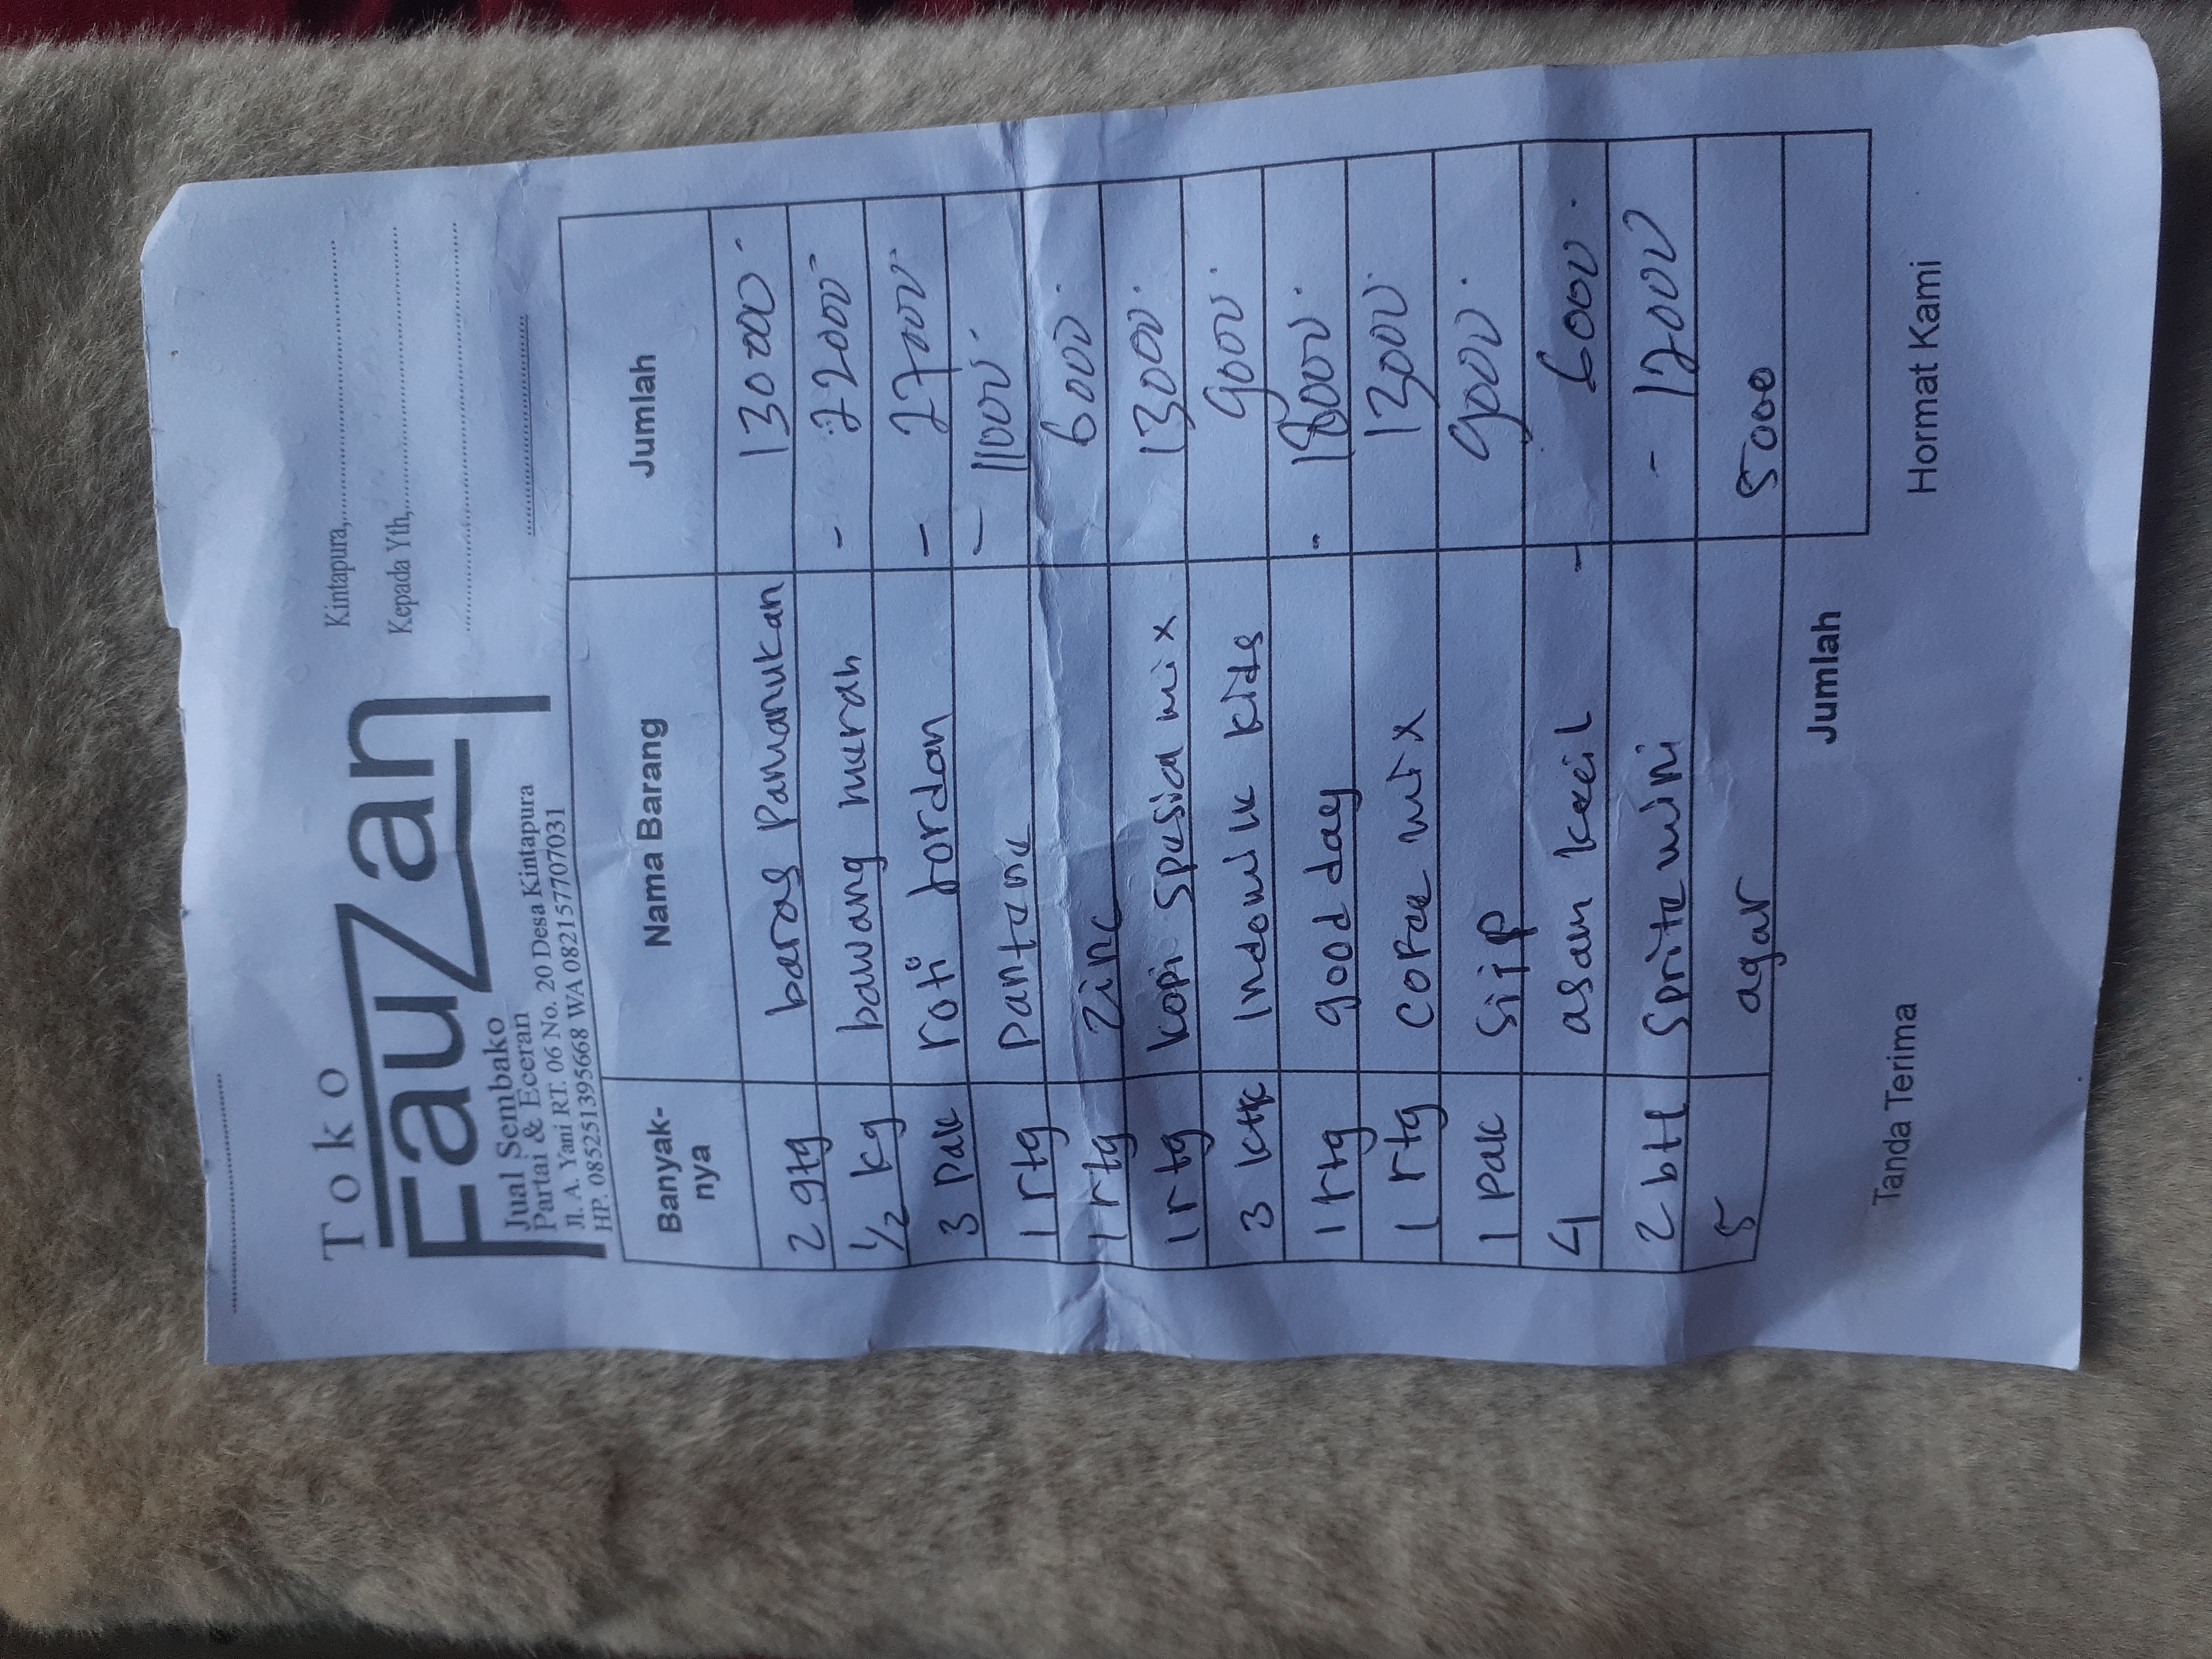 Toko
Fauzan
Jual Sembako
Partai & Eceran
Jl. A. Yani RT. 06 No. 20 Desa Kintapura
HP. 085251395668 WA 082157707031
Kintapura,
Kepada Yth,
Banyak-nya Nama Barang Jumlah
2 gtg baras Pamanukan 130000
1/2 kg bawang murah - 22000
3 Pak roti Jordan - 27000
1 rtg Pantene - 11000
1 rtg Zinc 6000
1 rtg kopi spesial mix 13000
3 ktk Indomilk kids 9000
1 rtg good day - 18000
1 rtg Cofee mix 13000
1 Pak Siip 9000
4 asam kecil - 6000
2 btl Sprite mini - 12000
5 agar 5000
Jumlah
Tanda Terima Hormat Kami